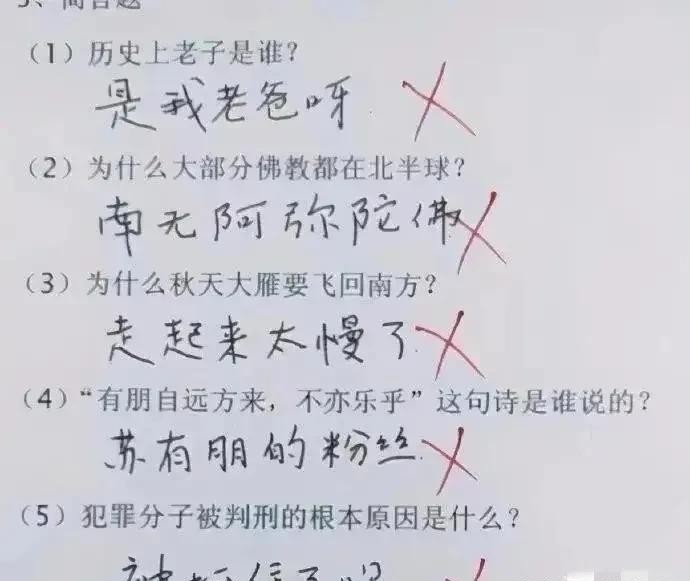 (1) 历史上老子是谁？
是我老爸呀
(2) 为什么大部分佛教都在北半球？
南无阿弥陀佛
(3) 为什么秋天大雁要飞回南方？
走起来太慢了
(4) “有朋自远方来，不亦乐乎”这句诗是谁说的？
苏有朋的粉丝
(5) 犯罪分子被判刑的根本原因是什么？